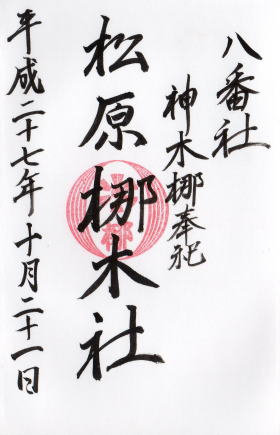 八番社
神木梛奉祀
松原梛木社
平成二十七年十月二十一日